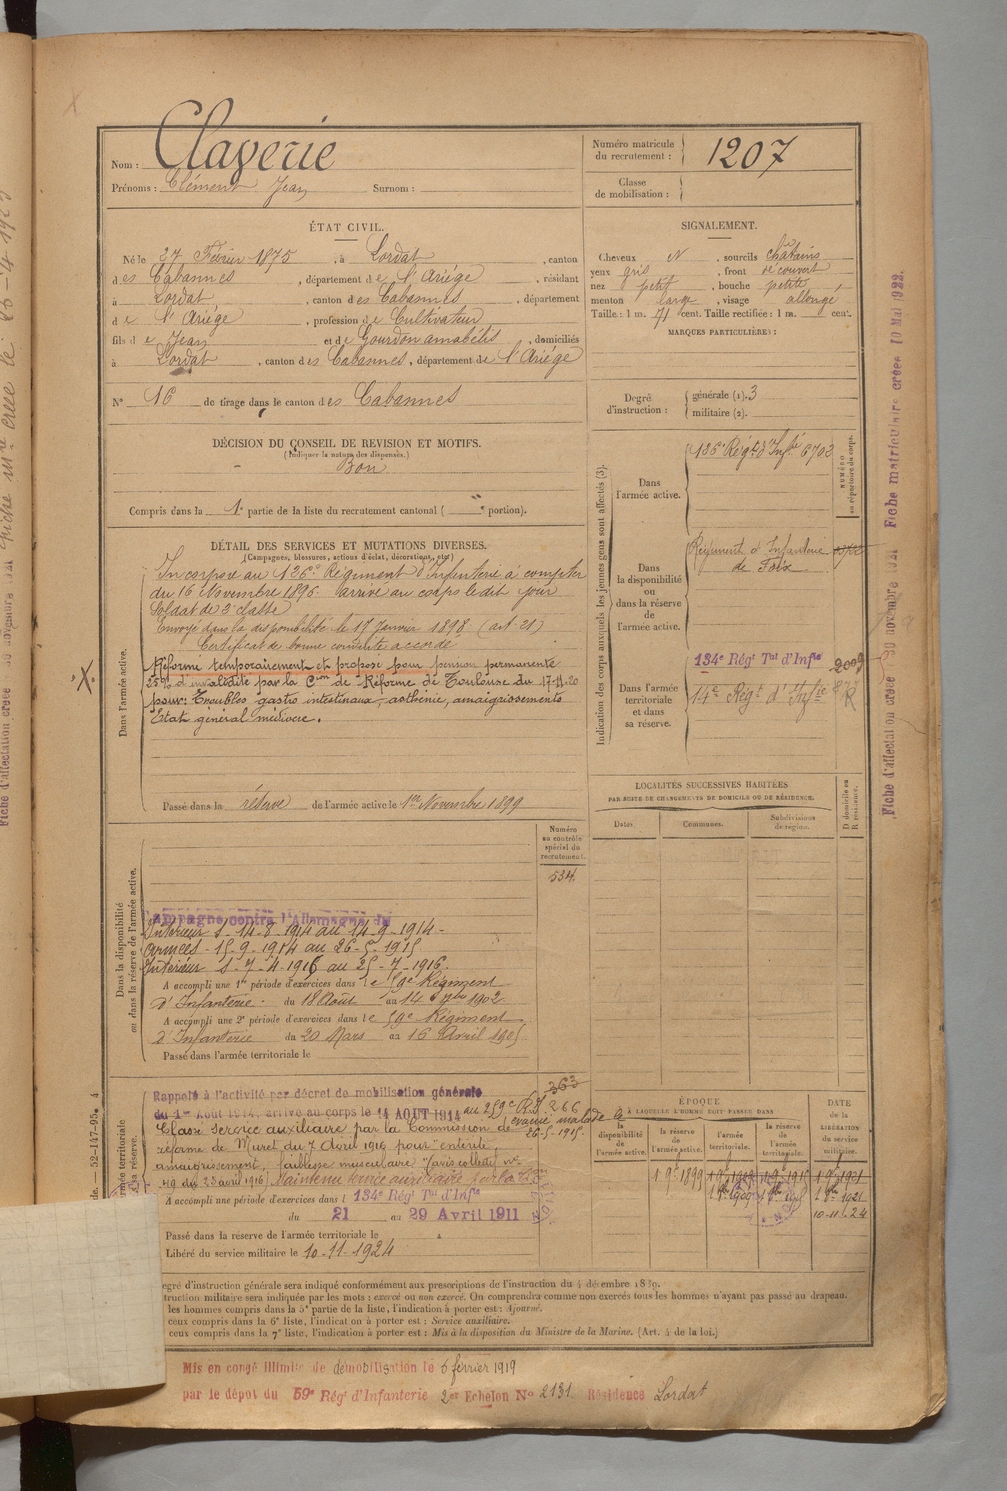 Nom : Claverie
Prénoms : Clément Jean Surnom :
Numéro matricule du recrutement : 1207
Classe de mobilisation :
ÉTAT CIVIL.
Né le 27 Février 1875, à Lordat, canton
des Cabannes, département de l'Ariége, résidant
à Lordat, canton des Cabannes, département
de l'Ariége, profession de Cultivateur
fils de Jean et de Gourdon amabélis, domiciliés
à Lordat, canton des Cabannes, département de l'Ariége
N° 16 de tirage dans le canton des Cabannes
SIGNALEMENT.
Cheveux N, sourcils chatains
yeux gris, front découvert
nez petit, bouche petite
menton large, visage allongé
Taille : 1 m. 71 cent. Taille rectifiée : 1 m. cent.
MARQUES PARTICULIÈRES :
Degré d'instruction : générale (1). 3
militaire (2).
DÉCISION DU CONSEIL DE REVISION ET MOTIFS.
(Indiquer la nature des dispenses.)
Bon
Compris dans la 1e partie de la liste du recrutement cantonal ( portion).
DÉTAIL DES SERVICES ET MUTATIONS DIVERSES.
(Campagnes, blessures, actions d'éclat, décorations, etc.)
Dans l'armée active.
Incorporé au 126e Régiment d'Infanterie à compter
du 16 Novembre 1896. arrivé au corps le dit jour
Soldat de 2e classe
Envoyé dans la disponibilité le 17 Janvier 1898 (art. 21)
Certificat de bonne conduite accordé
Réformé temporairement et proposé pour pension permanente
25% d'invalidité par la Con de Réforme de Toulouse du 17-11-20
pour : Troubles gastro intestinaux, asthénie, amaigrissements
Etat général médiocre.
Passé dans la réserve de l'armée active le 1er Novembre 1899
Indication des corps auxquels les jeunes gens sont affectés (3).
NUMÉRO au répertoire du corps.
Dans l'armée active.
126e Régt d'Infie 6702
Dans la disponibilité ou dans la réserve de l'armée active.
Régiment d'Infanterie
de Foix
Dans l'armée territoriale et dans sa réserve.
134e Régt Tal d'Infie 2009
14e Régt d'Infie
LOCALITÉS SUCCESSIVES HABITÉES
PAR SUITE DE CHANGEMENTS DE DOMICILE OU DE RÉSIDENCE.
Dates. Communes. Subdivisions de région.
D domicile ou R résidence.
Dans la disponibilité ou dans la réserve de l'armée active.
Numéro au contrôle spécial du recrutement.
534.
Campagne contre l'Allemagne du
Intérieur S. 14-8 1914 au 14-9-1914-
Armées - 15-9-1914 au 26-5-1915
Intérieur S-7-4-1916 au 25-7-1916.
A accompli une 1re période d'exercices dans le 59e Régiment
d'Infanterie. du 18 Août au 14 7bre 1902
A accompli une 2e période d'exercices dans le 59e Régiment
d'Infanterie du 20 Mars au 16 Avril 1905
Passé dans l'armée territoriale le
Rappelé à l'activité par décret de mobilisation générale
du 1er Août 1914, arrivé au corps le 14 AOUT 1914 au 259e R.I.
363
266
évacué malade le
26-5-1915.
Classé Service auxiliaire par la Commission de
réforme de Muret du 7 Avril 1916 pour entérite,
amaigrissement, faiblesse musculaire
49 du 23 août 1916 Maintenu service auxiliaire par la
A accompli une période d'exercices dans l 134e Régt Tal d'Infie
du 21 au 29 Avril 1911
Passé dans la réserve de l'armée territoriale le
Libéré du service militaire le 10-11-1924
ÉPOQUE
À LAQUELLE L'HOMME DOIT PASSER DANS
la disponibilité de l'armée active.
la réserve de l'armée active.
l'armée territoriale.
la réserve de l'armée territoriale.
DATE de la LIBÉRATION du service militaire.
10-11-24
egré d'instruction générale sera indiqué conformément aux prescriptions de l'instruction du 4 décembre 1889.
truction militaire sera indiquée par les mots : exercé ou non exercé. On comprendra comme non exercés tous les hommes n'ayant pas passé au drapeau.
les hommes compris dans la 5e partie de la liste, l'indication à porter est : Ajourné.
ceux compris dans la 6e liste, l'indication à porter est : Service auxiliaire.
ceux compris dans la 7e liste, l'indication à porter est : Mis à la disposition du Ministre de la Marine. (Art. 4 de la loi.)
Mis en congé illimité de démobilisation le 6 février 1919
par le dépôt du 59e Régt d'Infanterie 2er Echelon No 2131 Résidence Lordat
Fiche d'affectation créée 30 novembre 1921 Fiche matriculaire créée 10 Mai 1922.